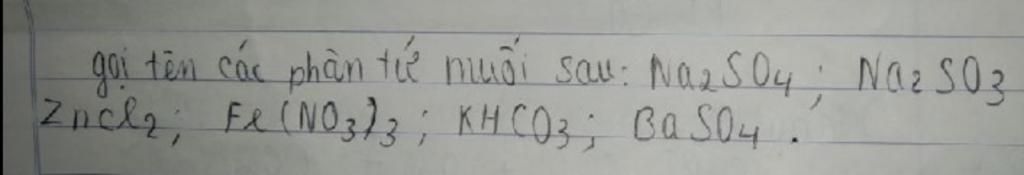 gọi tên các phân tử muối sau: Na2SO4; Na2SO3
ZnCl2; Fe(NO3)3; KHCO3; BaSO4.